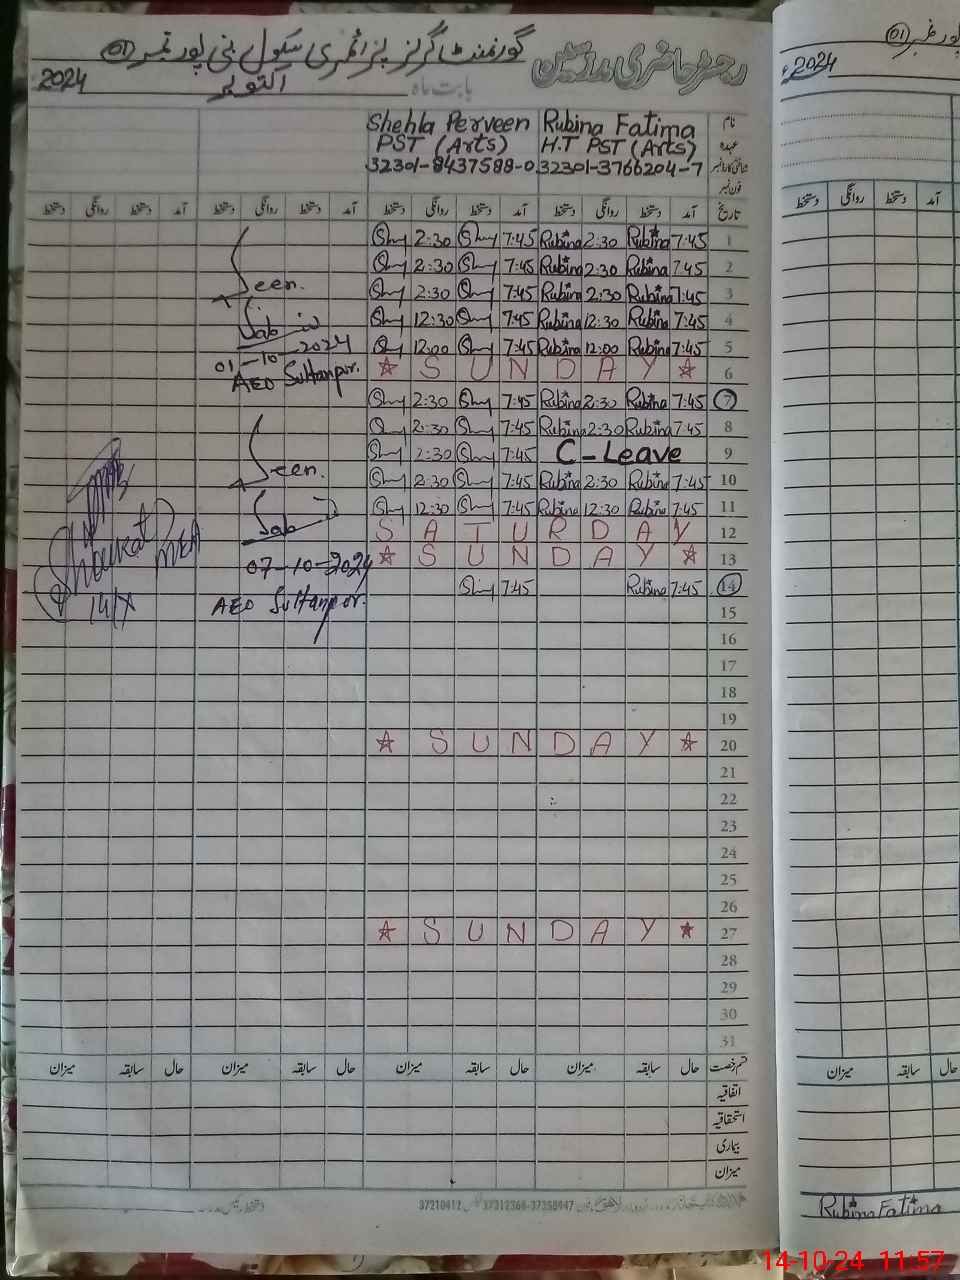 رجسٹر حاضری مدرسین گورنمنٹ گرلز پرائمری سکول بنی پور نمبر 01
بابت ماہ اکتوبر 2024
نام Rubina Fatima Shehla Perveen
عہدہ H.T PST (Arts) PST (Arts)
شناختی کارڈ نمبر 32301-3766204-7 32301-8437588-0
فون نمبر
تاریخ آمد دستخط روانگی دستخط آمد دستخط روانگی دستخط آمد دستخط روانگی دستخط آمد دستخط روانگی دستخط
1 7:45 Rubina 2:30 Rubina 7:45 2:30
2 7:45 Rubina 2:30 Rubina 7:45 2:30
3 7:45 Rubina 2:30 Rubina 7:45 2:30
4 7:45 Rubina 12:30 Rubina 7:45 12:30
5 7:45 Rubina 12:00 Rubina 7:45 12:00
6 SUNDAY
7 7:45 Rubina 2:30 Rubina 7:45 2:30
8 7:45 Rubina 2:30 Rubina 7:45 2:30
9 C-Leave 7:45 2:30
10 7:45 Rubina 2:30 Rubina 7:45 2:30
11 7:45 Rubina 12:30 Rubina 7:45 12:30
12 SATURDAY
13 SUNDAY
14 7:45 Rubina 7:45
15
16
17
18
19
20 SUNDAY
21
22
23
24
25
26
27 SUNDAY
28
29
30
31
Seen.
01-10-2024
AEO Sultanpur.
Seen.
07-10-2024
AEO Sultanpur.
Shaukat
MEA
14/X
قسم رخصت حال سابقہ میزان حال سابقہ میزان حال سابقہ میزان حال سابقہ میزان
اتفاقیہ
استحقاقیہ
بیماری
میزان
37312368-37358947
37210412
پور نمبر 01
2024
آمد دستخط روانگی دستخط
حال سابقہ میزان
Rubina Fatima
14-10-24 11:57